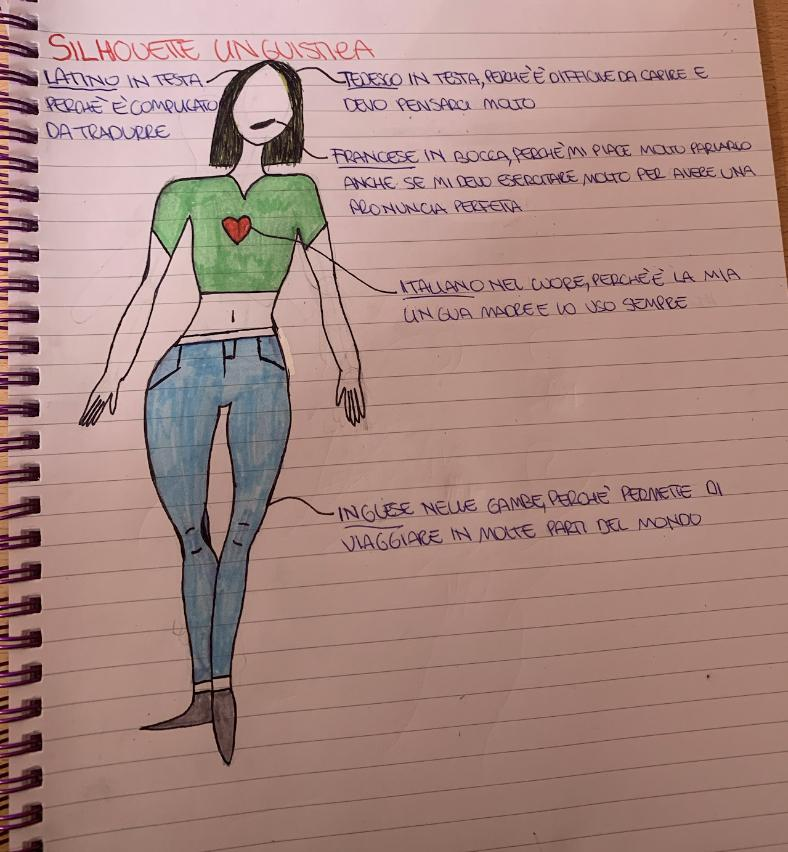 SILHOUETTE LINGUISTICA
LATINO IN TESTA
PERCHÈ È COMPLICATO
DA TRADURRE
TEDESCO IN TESTA, PERCHÈ È DIFFICILE DA CAPIRE E
DEVO PENSARCI MOLTO
FRANCESE IN BOCCA, PERCHÈ MI PIACE MOLTO PARLARLO
ANCHE SE MI DEVO ESERCITARE MOLTO PER AVERE UNA
PRONUNCIA PERFETTA
ITALIANO NEL CUORE, PERCHÈ È LA MIA
LINGUA MADRE E LO USO SEMPRE
INGLESE NELLE GAMBE, PERCHÈ PERMETTE DI
VIAGGIARE IN MOLTE PARTI DEL MONDO